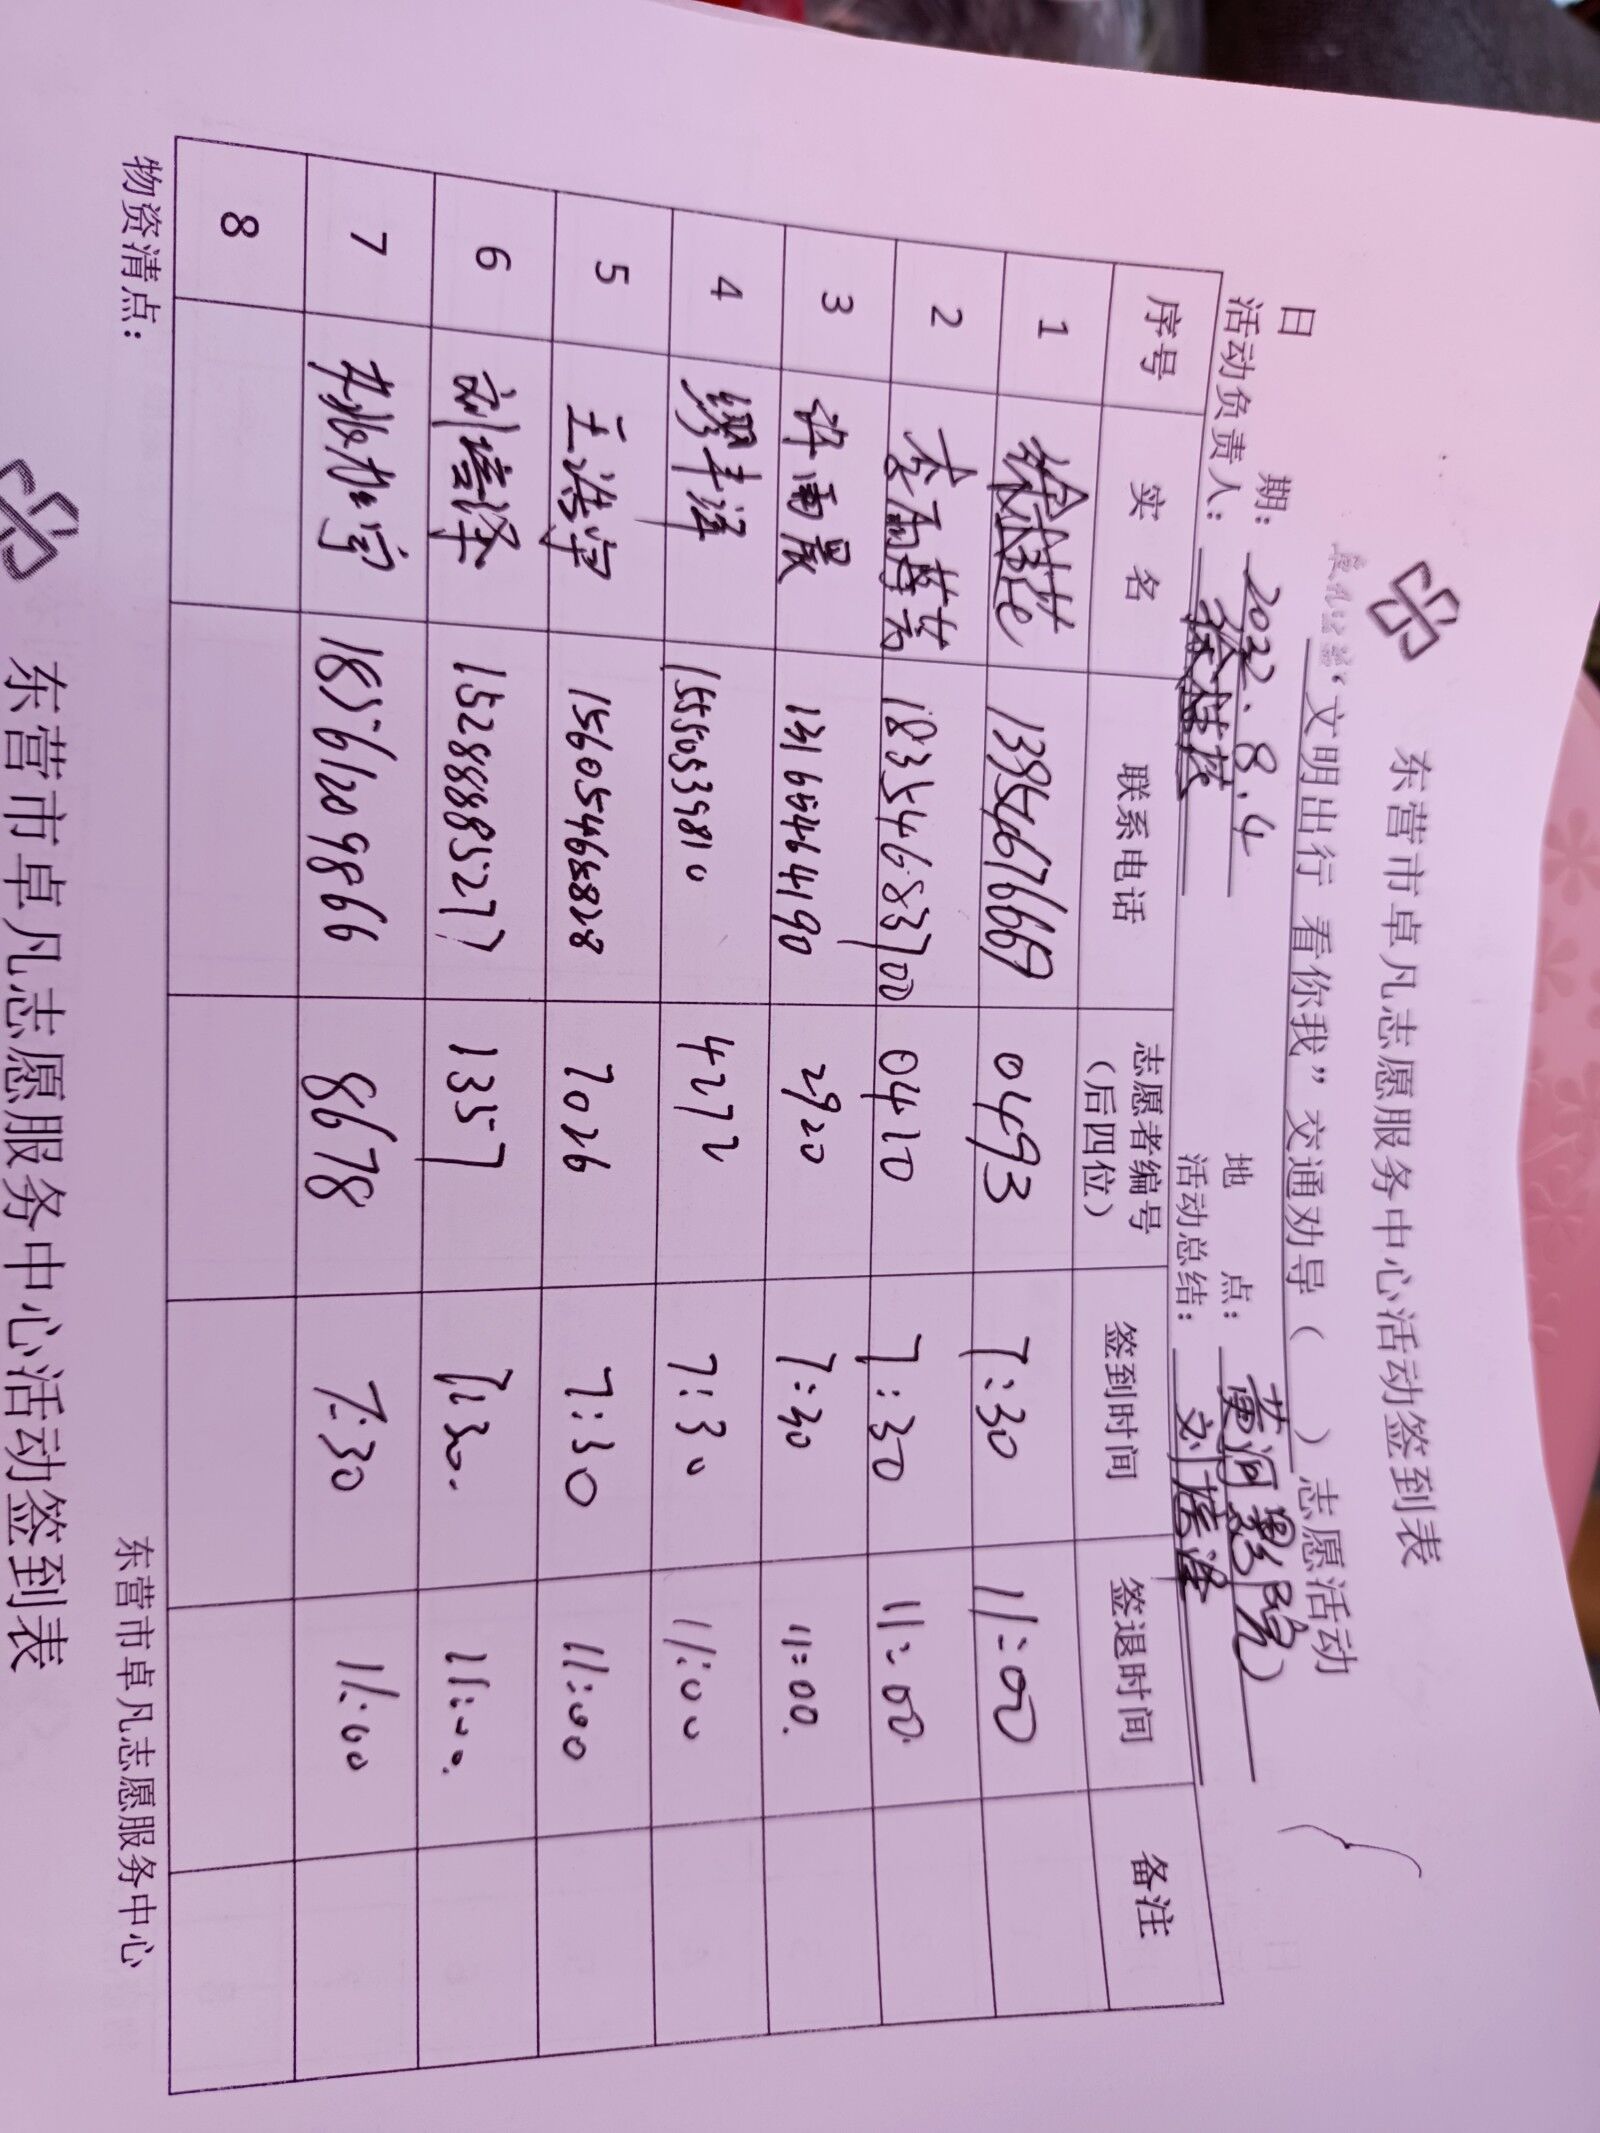 东营市卓凡志愿服务中心活动签到表
“文明出行 看你我”交通劝导（ ）志愿活动
日 期：2022.8.4 地 点：黄河影院
活动负责人： 活动总结：刘培泽
序号 实 名 联系电话 志愿者编号（后四位） 签到时间 签退时间 备注
1 0493 7:30 11:00
2 18354683700 0410 7:30 11:00
3 许雨晨 2920 7:30 11:00.
4 15550539810 4272 7:30 11:00
5 王浩宇 15605468828 7026 7:30 11:00
6 刘培泽 15288885277 1357 7:30. 11:00.
7 18561209866 8678 7:30 11:00
8
物资清点： 东营市卓凡志愿服务中心
东营市卓凡志愿服务中心活动签到表